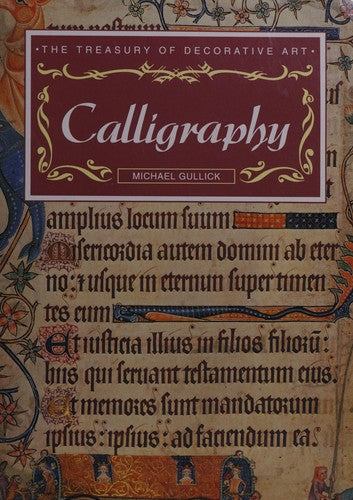 · THE TREASURY OF DECORATIVE ART ·
Calligraphy
MICHAEL GULLICK
amplius locum suum
Misericordia autem domini ab eter
no: ⁊ usque in eternum super timen
tes eum
Et iusticia illius in filios filiorū:
hiis qui seruant testamentum eius.
Et memores sunt mandatorum
ipsius: ipsius: ad faciendum ea.